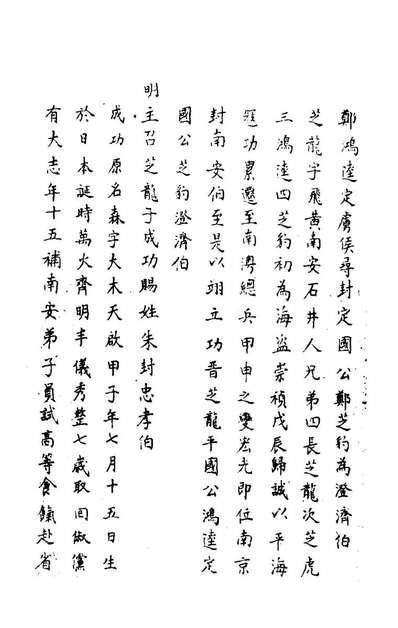 鄭鴻逵定虜侯尋封定國公鄭芝豹為澄濟伯
芝龍字飛黃南安石井人兄弟四長芝龍次芝虎
三鴻逵四芝豹初為海盜崇禎戊辰歸誠以平海
功累遷至南澳總兵甲申之變宏光即位南京
封南安伯至是以翊立功晋芝龍平國公鴻逵定
國公芝豹澄濟伯
明主召芝龍子成功賜姓朱封忠孝伯
成功原名森字大木天啟甲子年七月十五日生
於日本誕時萬火齊明丰儀秀整七歲取回倜儻
有大志年十五補南安弟子員試高等食餼赴省